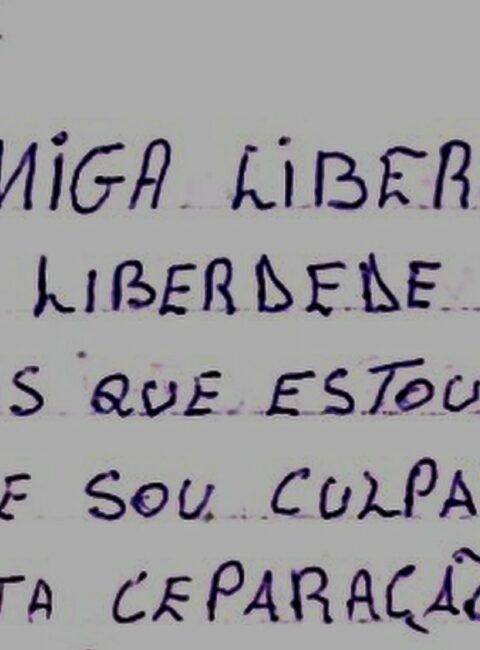 MIGA LIBER
LIBERDEDE
S QUE ESTOU
E SOU CULPA
TA CEPARAÇÃO